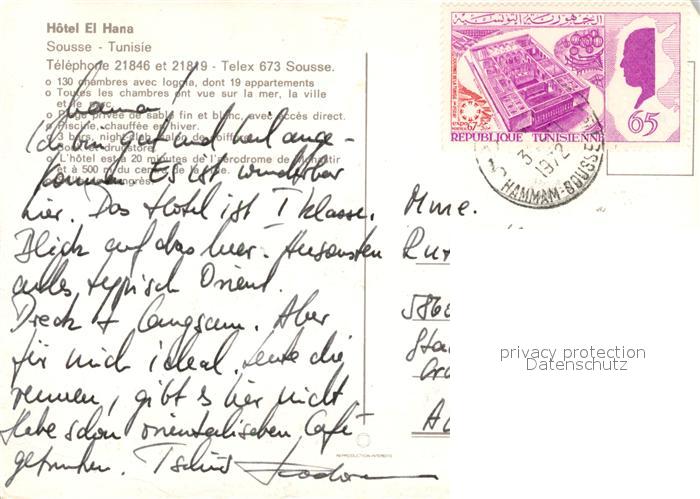 Hôtel El Hana
Sousse - Tunisie
Téléphone 21846 et 21819 - Telex 673 Sousse.
o 130 chambres avec loggia, dont 19 appartements
o Toutes les chambres ont vue sur la mer, la ville
et le parc.
o Plage privée de sable fin et blanc, avec accès direct.
o Piscine, chauffée en hiver.
o 3 bars, night
o L'hôtel est à 20 minutes de l'aérodrome de Monastir
et à 500 m du centre de la ville.
Mama!
Ich bin gut und heil ange-
kommen. Es ist wunderbar
hier. Das Hotel ist I Klasse.
Blick auf das Meer. Ansonsten
alles typisch Orient.
Dreck + langsam. Aber
für mich ideal. Leute die
rennen, gibt es hier nicht
Habe schon orientalischen Café
getrunken. Tschüs
REPRODUCTION INTERDITE
الجمهورية التونسية
EXPO 67
REPUBLIQUE TUNISIENNE
65
3
1972
HAMMAM-SOUSSE
Mme.
privacy protection
Datenschutz